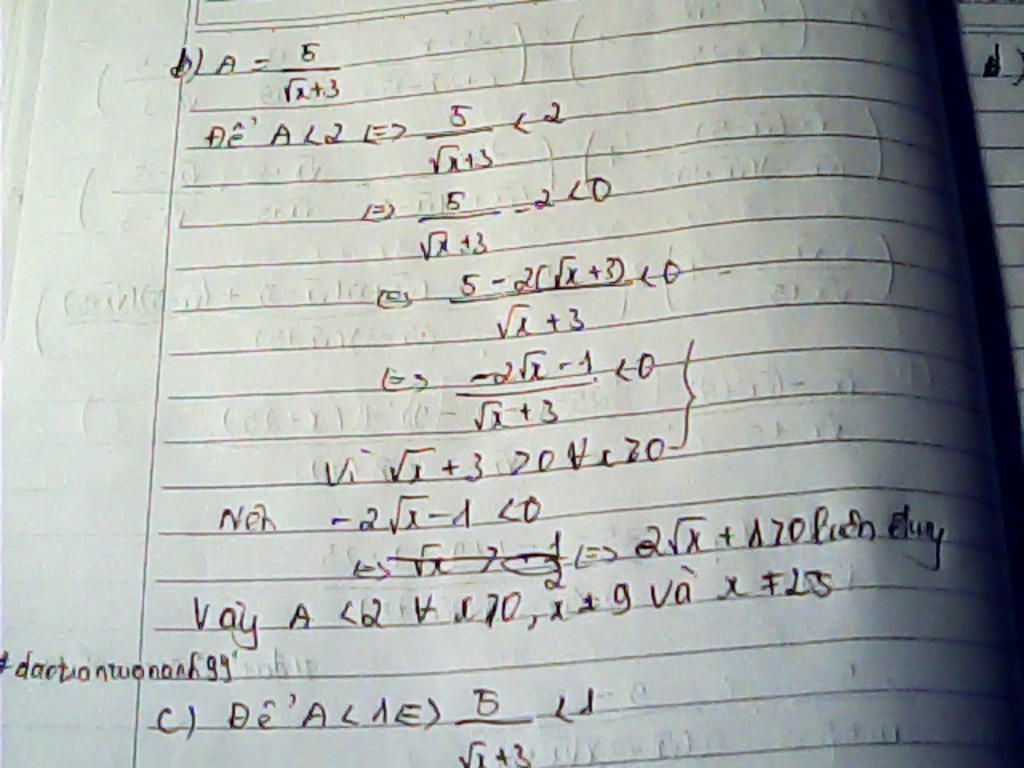 b) A = 5/(√x+3)
Để A < 2 <=> 5/(√x+3) < 2
<=> 5/(√x+3) - 2 < 0
<=> (5 - 2(√x+3))/(√x+3) < 0
<=> (-2√x - 1)/(√x+3) < 0 }
Vì √x + 3 > 0 ∀ x ≥ 0
Nên -2√x - 1 < 0
<=> <=> 2√x + 1 > 0 luôn đúng
Vậy A < 2 ∀ x ≥ 0, x ≠ 9 và x ≠ 25
c) Để A < 1 <=> 5/(√x+3) < 1